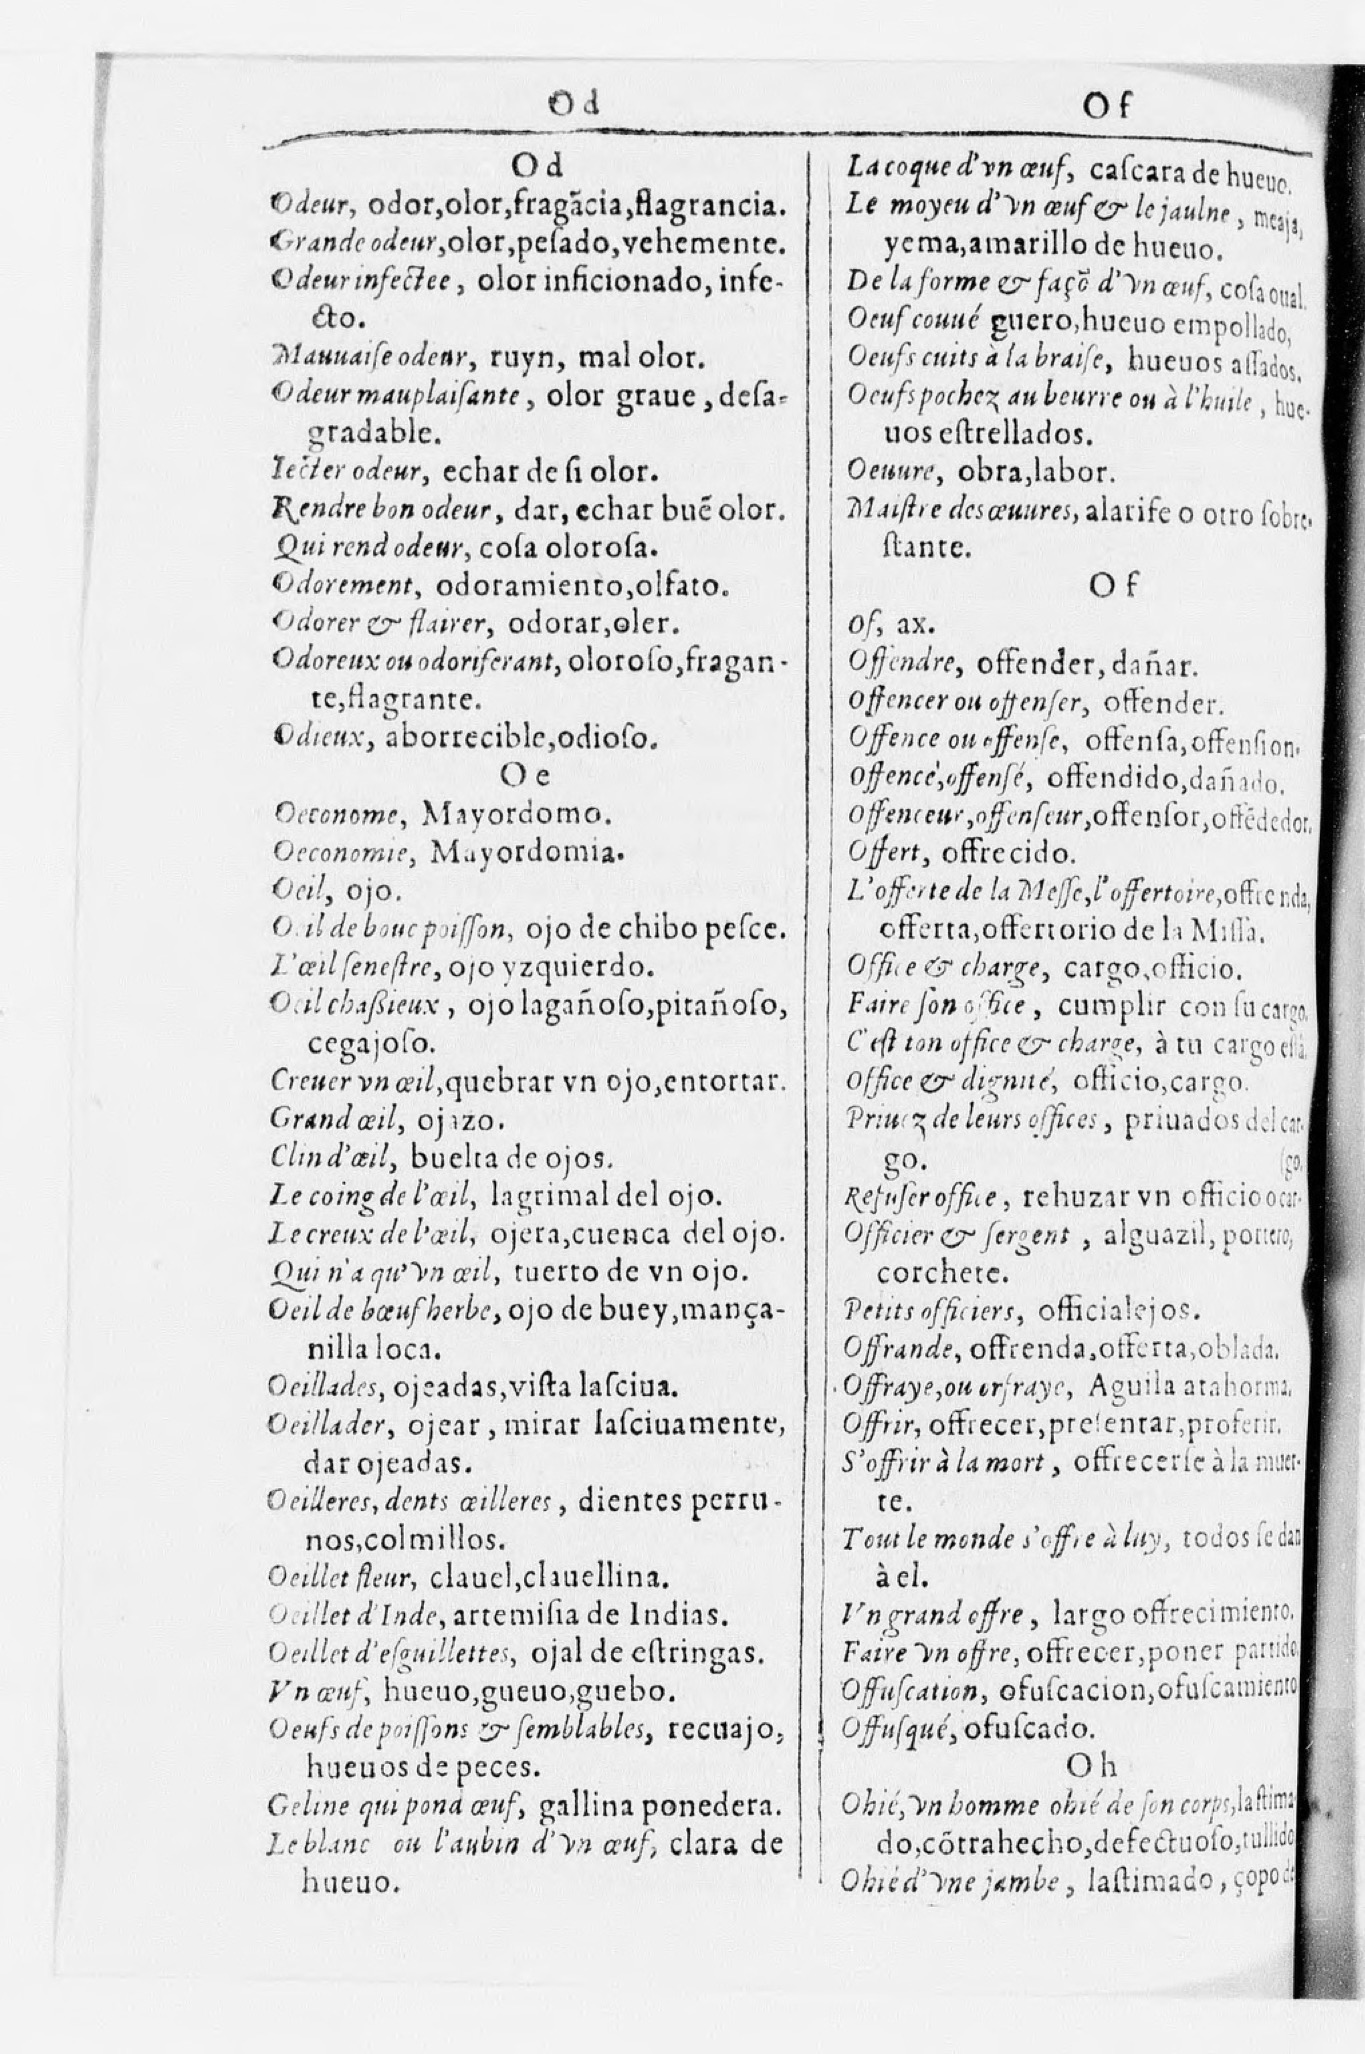 Od
Of
Od
Odeur, odor,olor,fragãcia,flagrancia.
Grande odeur,olor,pesado,vehemente.
Odeur infectee, olor inficionado, infe-
cto.
Mauuaiſe odeur, ruyn, mal olor.
Odeur mauplaiſante, olor graue, deſa-
gradable.
Iecter odeur, echar de ſi olor.
Rendre bon odeur, dar, echar buẽ olor.
Qui rend odeur, coſa oloroſa.
Odorement, odoramiento,olfato.
Odorer & flairer, odorar,oler.
Odoreux ou odoriferant, oloroſo,fragan-
te,flagrante.
Odieux, aborrecible,odioſo.
Oe
Oeconome, Mayordomo.
Oeconomie, Mayordomia.
Oeil, ojo.
Oeil de bouc poiſſon, ojo de chibo peſce.
L'œil ſeneſtre, ojo yzquierdo.
Oeil chaßieux, ojo lagañoſo,pitañoſo,
cegajoſo.
Creuer vn œil,quebrar vn ojo,entortar.
Grand œil, ojazo.
Clin d'œil, buelta de ojos.
Le coing de l'œil, lagrimal del ojo.
Le creux de l'œil, ojera,cuenca del ojo.
Qui n'a qu'vn œil, tuerto de vn ojo.
Oeil de bœuf herbe, ojo de buey,mança-
nilla loca.
Oeillades, ojeadas,viſta laſciua.
Oeillader, ojear, mirar laſciuamente,
dar ojeadas.
Oeilleres, dents œilleres, dientes perru-
nos,colmillos.
Oeillet fleur, clauel,clauellina.
Oeillet d'Inde, artemiſia de Indias.
Oeillet d'eſguillettes, ojal de eſtringas.
Vn œuf, hueuo,gueuo,guebo.
Oeufs de poiſſons & ſemblables, recuajo,
hueuos de peces.
Geline qui pond œuf, gallina ponedera.
Le blanc ou l'aubin d'vn œuf, clara de
hueuo.
La coque d'vn œuf, caſcara de hueuo.
Le moyeu d'vn œuf & le jaulne, meaja,
yema,amarillo de hueuo.
De la forme & façõ d'vn œuf, coſa oual.
Oeuf couué guero,hueuo empollado,
Oeufs cuits à la braiſe, hueuos aſſados.
Oeufs pochez au beurre ou à l'huile, hue-
uos eſtrellados.
Oeuure, obra,labor.
Maiſtre des œuures, alarife o otro ſobre-
ſtante.
Of
Of, ax.
Offendre, offender, dañar.
Offencer ou offenſer, offender.
Offence ou offenſe, offenſa,offenſion.
Offencé,offenſé, offendido,dañado.
Offenceur,offenſeur,offenſor,offẽdedor.
Offert, offrecido.
L'offerte de la Meſſe,l'offertoire,offrenda,
offerta,offertorio de la Miſſa.
Office & charge, cargo,officio.
Faire ſon office, cumplir con ſu cargo.
C'eſt ton office & charge, à tu cargo eſtà.
Office & dignité, officio,cargo.
Priuez de leurs offices, priuados del car-
go. (go.
Refuſer office, rehuzar vn officio o car-
Officier & ſergent, alguazil, portero,
corchete.
Petits officiers, officialejos.
Offrande, offrenda,offerta,oblada.
Offraye,ou orfraye, Aguila atahorma.
Offrir, offrecer,preſentar,proferir.
S'offrir à la mort, offrecerſe à la muer-
te.
Tout le monde s'offre à luy, todos ſe dan
à el.
Vn grand offre, largo offrecimiento.
Faire vn offre, offrecer,poner partido
Offuſcation, ofuſcacion,ofuſcamiento
Offuſqué, ofuſcado.
Oh
Ohié,vn homme ohié de ſon corps,laſtima-
do,cõtrahecho,defectuoſo,tullido
Ohié d'vne jambe, laſtimado, çopo de